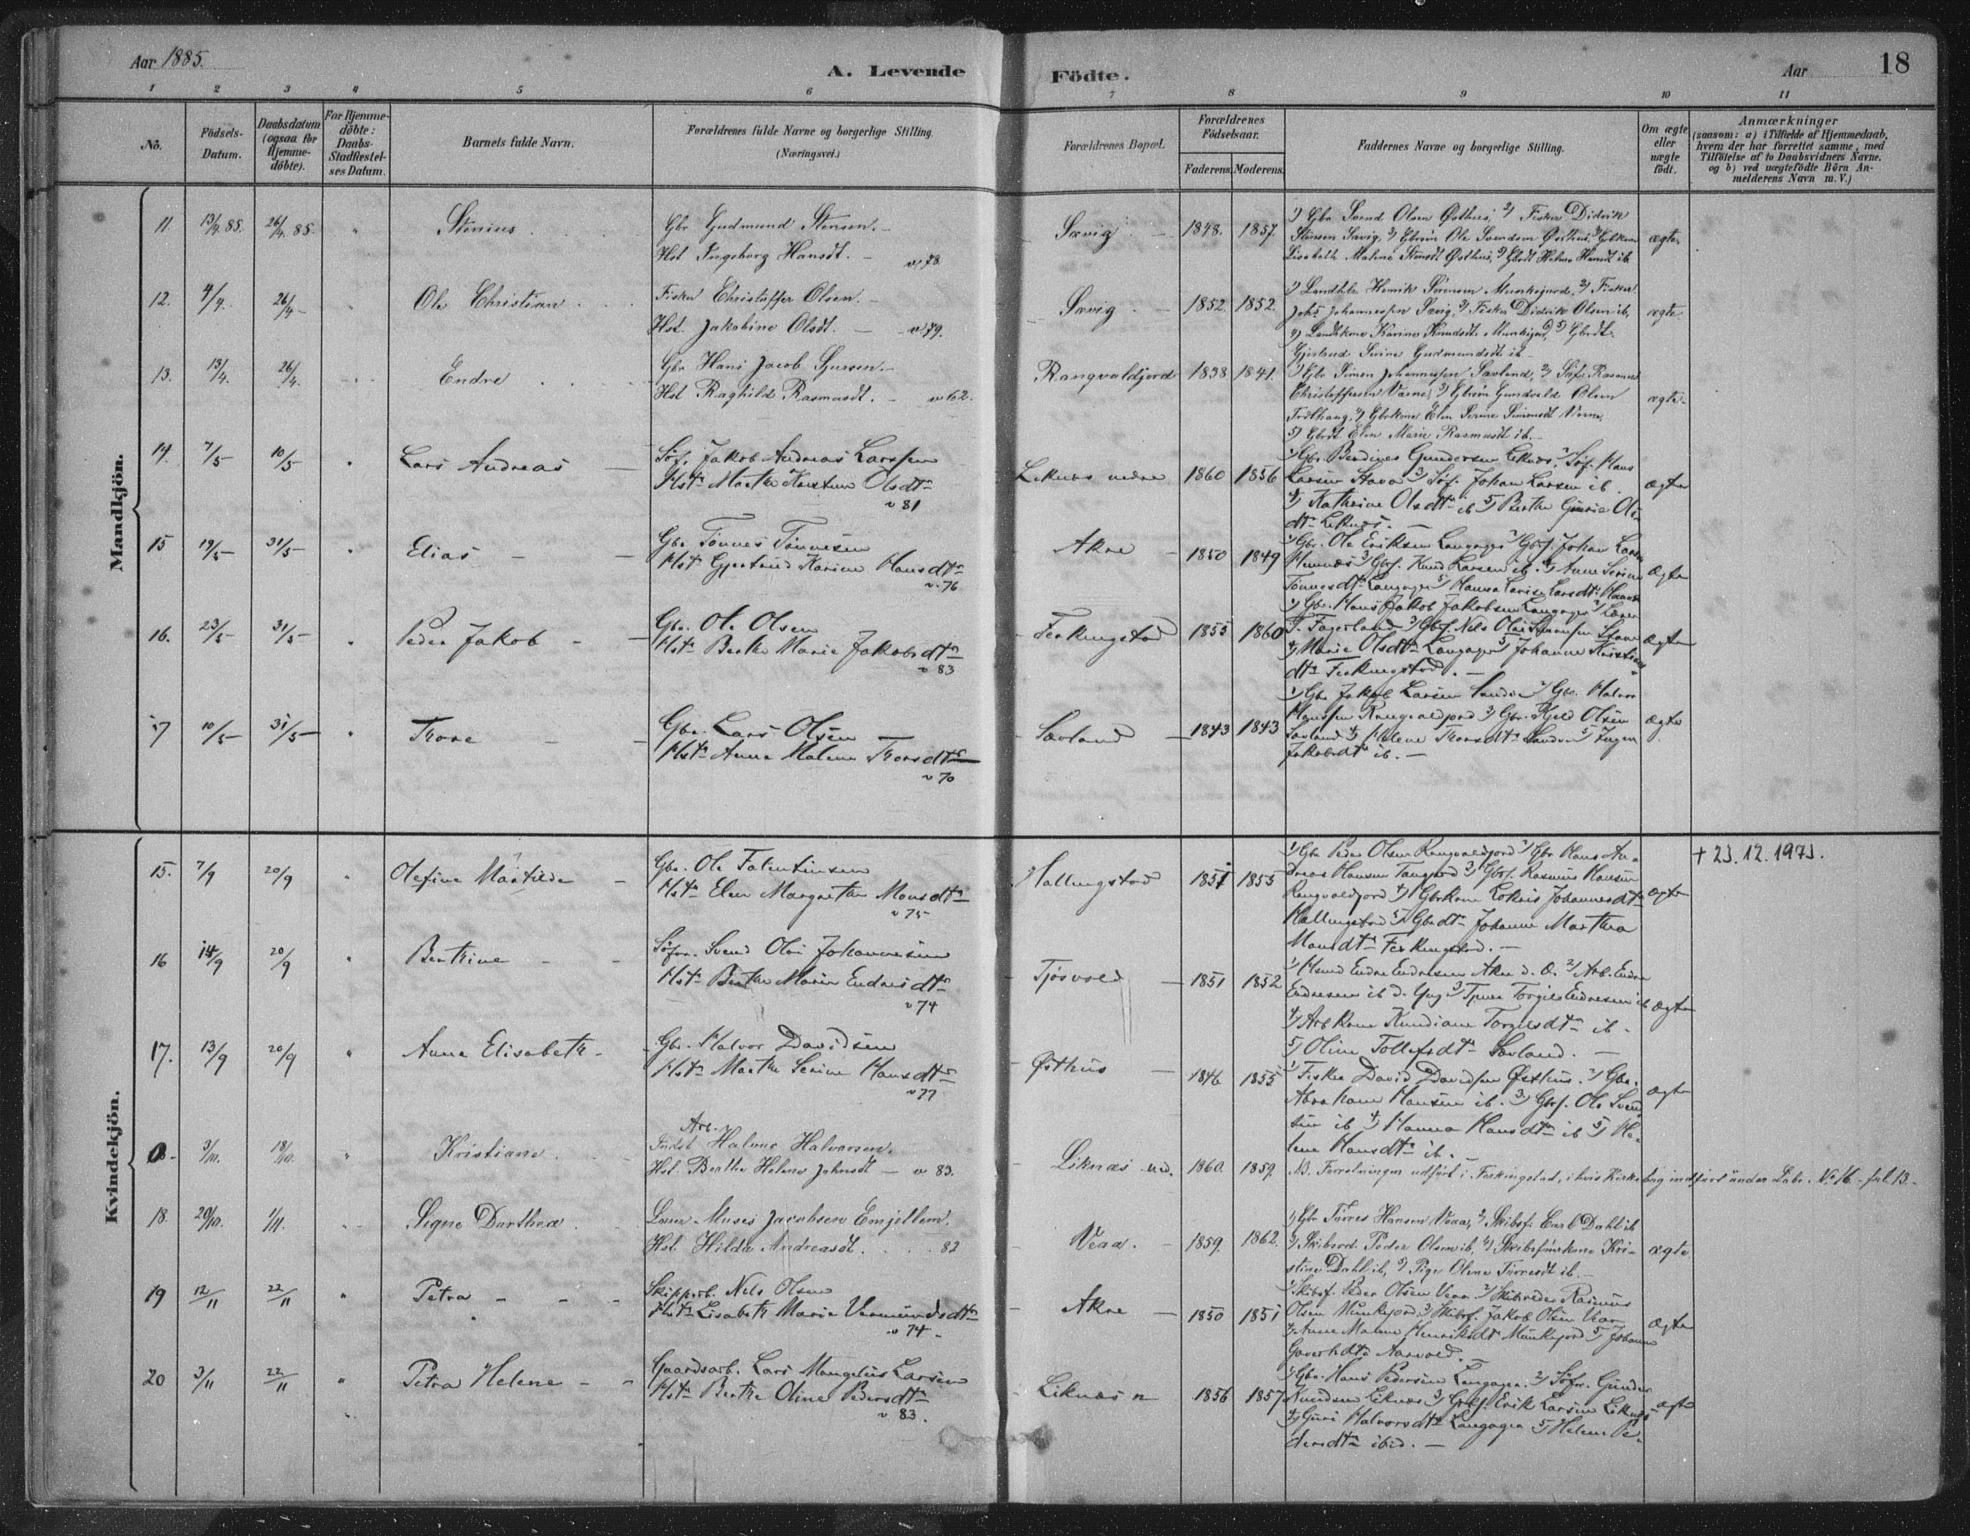 Aar 1885.
A. Levende
Födte.
Aar
18
1 2 3 4 5 6 7 8 9 10 11
No.
Födsels-Datum.
Daabsdatum (ogsaa for Hjemme-döbte).
For Hjemme-döbte: Daabs-Stadfæstel-ses Datum.
Barnets fulde Navn.
Forældrenes fulde Navne og borgerlige Stilling. (Næringsvei.)
Forældrenes Bopæl.
Forældrenes Födselsaar.
Faderens. Moderens.
Faddernes Navne og borgerlige Stilling.
Om ægte eller uægte födt.
Anmærkninger
(saasom: a) i Tilfælde af Hjemmedaab, hvem der har forrettet samme, med Tilföielse af to Daabsvidners Navne, og b) ved uægtefödte Börn An-melderens Navn m. V.)
Mandkjön.
11. 13/4 85. 26/4 85. " Stenius
Gbr Gudmund Stensen.
Hst Ingeborg Hansdt. v. 78
Sævig 1848. 1857.
1) Gbr Svend Olsen Østhus, 2) Fisker Didrik
Stensen Sævig, 3) Gbrsøn Ole Svendsen Østhus,
ægte
12. 4/4. 26/4 " Ole Christian
Fisker Christoffer Olsen.
Hst. Jakobine Olsdt. v. 79.
Sævig 1852 1852.
1) Henrik Sörensen Munkejord, 2) Fisker
Johs Johannessen Sævig, 3) Fisker Didrik Olsen ib,
Karine Knudsdt. Munkejord, 5) Gbrdt.
Gjertrud Serine Gudmundsdt ib.
ægte
13. 13/4. 26/4. Endre
Gbr Hans Jacob
Hst Raghild Rasmusdt. v. 62.
Rangvaldjord 1838 1841.
1) Gbr Simon Johannessen Sævland, 2) Söfr. Rasmus
Christoffersen 3) Gbrsøn Gundvald Olsen
4) Gbrkone Elen Serine Simonsdt
5) Gbrdt Elen Marie Rasmusdt ib.
ægte
14. 7/5 10/5 " Lars Andreas
Söf. Jakob Andreas Larssen
Hst. Marthe Olsdtr
v 81
Liknæs nedre 1860 1856
1) Gbr. Gundersen Liknæs, 2) Söf. Hans
Larsen Stava 3) Söf. Johan Larsen ib.
4) Kathrine Olsdtr ib 5) Berthe Gurie Ols-
dtr Liknæs.
ægte
15 19/5 31/5 " Elias
Gbr Tönnes Tönnesen
Hst. Gjertrud Karine Hansdtr
v. 76
Akre 1850 1849
1) Gbr. Ole Eriksen Langager 2) Gbrf. Johan Larsen
3) Gbrf. Knud Larsen ib. 4) Anne Serine
Tönnesdtr Langager
ægte
16. 23/5 31/5 " Peder Jakob
Gbr. Ole Olsen
Hst. Berthe Marie Jakobsdtr
v 83
Ferkingstad 1855 1860
1) Gbr. Hans Jakob Jakobsen Langager
4) Marie Olsdtr Langager 5) Johanne Kristians-
dtr Ferkingstad.
ægte
17 10/5 31/5 " Thore
Gbr. Lars Olsen
Hst. Anne Malene Thorsdtr
v 70
Sævland 1843 1843
1) Gbr Jakob Larsen Sandve 2) Gbr. Halvor
Hanssen Rangvaldjord 3) Gbr. Kjeld Olsen
Sævland 4) Helene Thorsdtr Sandve 5) Inger
Jakobsdtr ib.
ægte
Kvindekjön.
15. 7/9 20/9 " Olefine Martilde
Gbr. Ole Falentinsen
Hst. Elen Margrethe Monsdtr
v 75
Hallingstad 1851 1855
1) Gbr Peder Olsen Rangvaldjord 2) Gbr Hans An-
dreas Hansen 3) Gbrf. Rasmus Hansen
Rangvaldjord 4) Gbrkone Johannesdtr
Hallingstad 5) Gbrdtr Johanne Martha
Monsdtr Ferkingstad.
ægte
+ 23.12.1973.
16 14/9 20/9 " Berthine
Söfr. Svend Olai Johannesen
Hst. Berthe Marie Endresdtr
v 74
Tjösvold 1851 1852
1) Endre Endresen Akre d. Æ. 2) Arb. Endre
Endresen ib d. Yng 3) Torgils Endresen ib
4) Arb kone Kundiane Torgilsdtr ib.
5) Oline Tollefsdtr Sævland.
ægte
17. 13/9 20/9 " Anne Elisabeth
Gbr. Halvor Davidsen
Hst. Marthe Serine Hansdtr
v 77
Østhus 1846 1855
1) Fisker David Davidsen Østhus. 2) Gbr.
Abraham Hansen ib. 3) Gbrf. Ole Svend-
sen ib 4) Hanna Hansdtr ib 5) He-
lene Hansdtr ib.
ægte
0 3/10. 18/10. " Kristiane
Arb.
Halvor Halvorsen.
Hst. Berthe Helene Johnsdt v 83.
Liknæs ned. 1860. 1859.
NB. Forretningen udført i Ferkingstad, i hvis Kirkebog indført under Labr. No 16 fol. 13.
18. 20/10. 1/11. Signe Dorthea
Moses Jacobsen
Hst. Hilda Andreasdt. 82
Veaa. 1859. 1862.
1) Gbr Torres Hansen Veaa, 2) Skibsf. Carl Dahl ib
3) Skibsred Peder Olsen ib, 4) Kri-
stine Dahl ib, 5) Pige Olene Torresdt ib.
ægte
19 12/11 22/11 " Petra
Skipperb. Nels Olsen
Hst. Lisabeth Marie Vermundsdtr
v 74
Akre 1850 1851
1) Skibsf. Peder Olsen Veaa 2) Skibsreder Rasmus
Olsen Munkejord 3) Skibsf. Jakob Olsen Veaa
4) Anne Malene Henriksdtr Munkejord 5) Johanne
Aasvold.
ægte
20 3/11 22/11 " Petra Helene
Gaardsarb. Lars Mangelus Larsen
Hst. Berthe Oline Pedersdtr
v 83.
Liknæs n 1856 1857
1) Gbr. Hans Pedersen Langager 2) Söfr. Gunder
Knudsen Liknæs 3) Gbrf. Erik Larsen Liknæs
4) Guri Halvorsdtr Langager 5) Helene Pe-
dersdtr ibid.
ægte